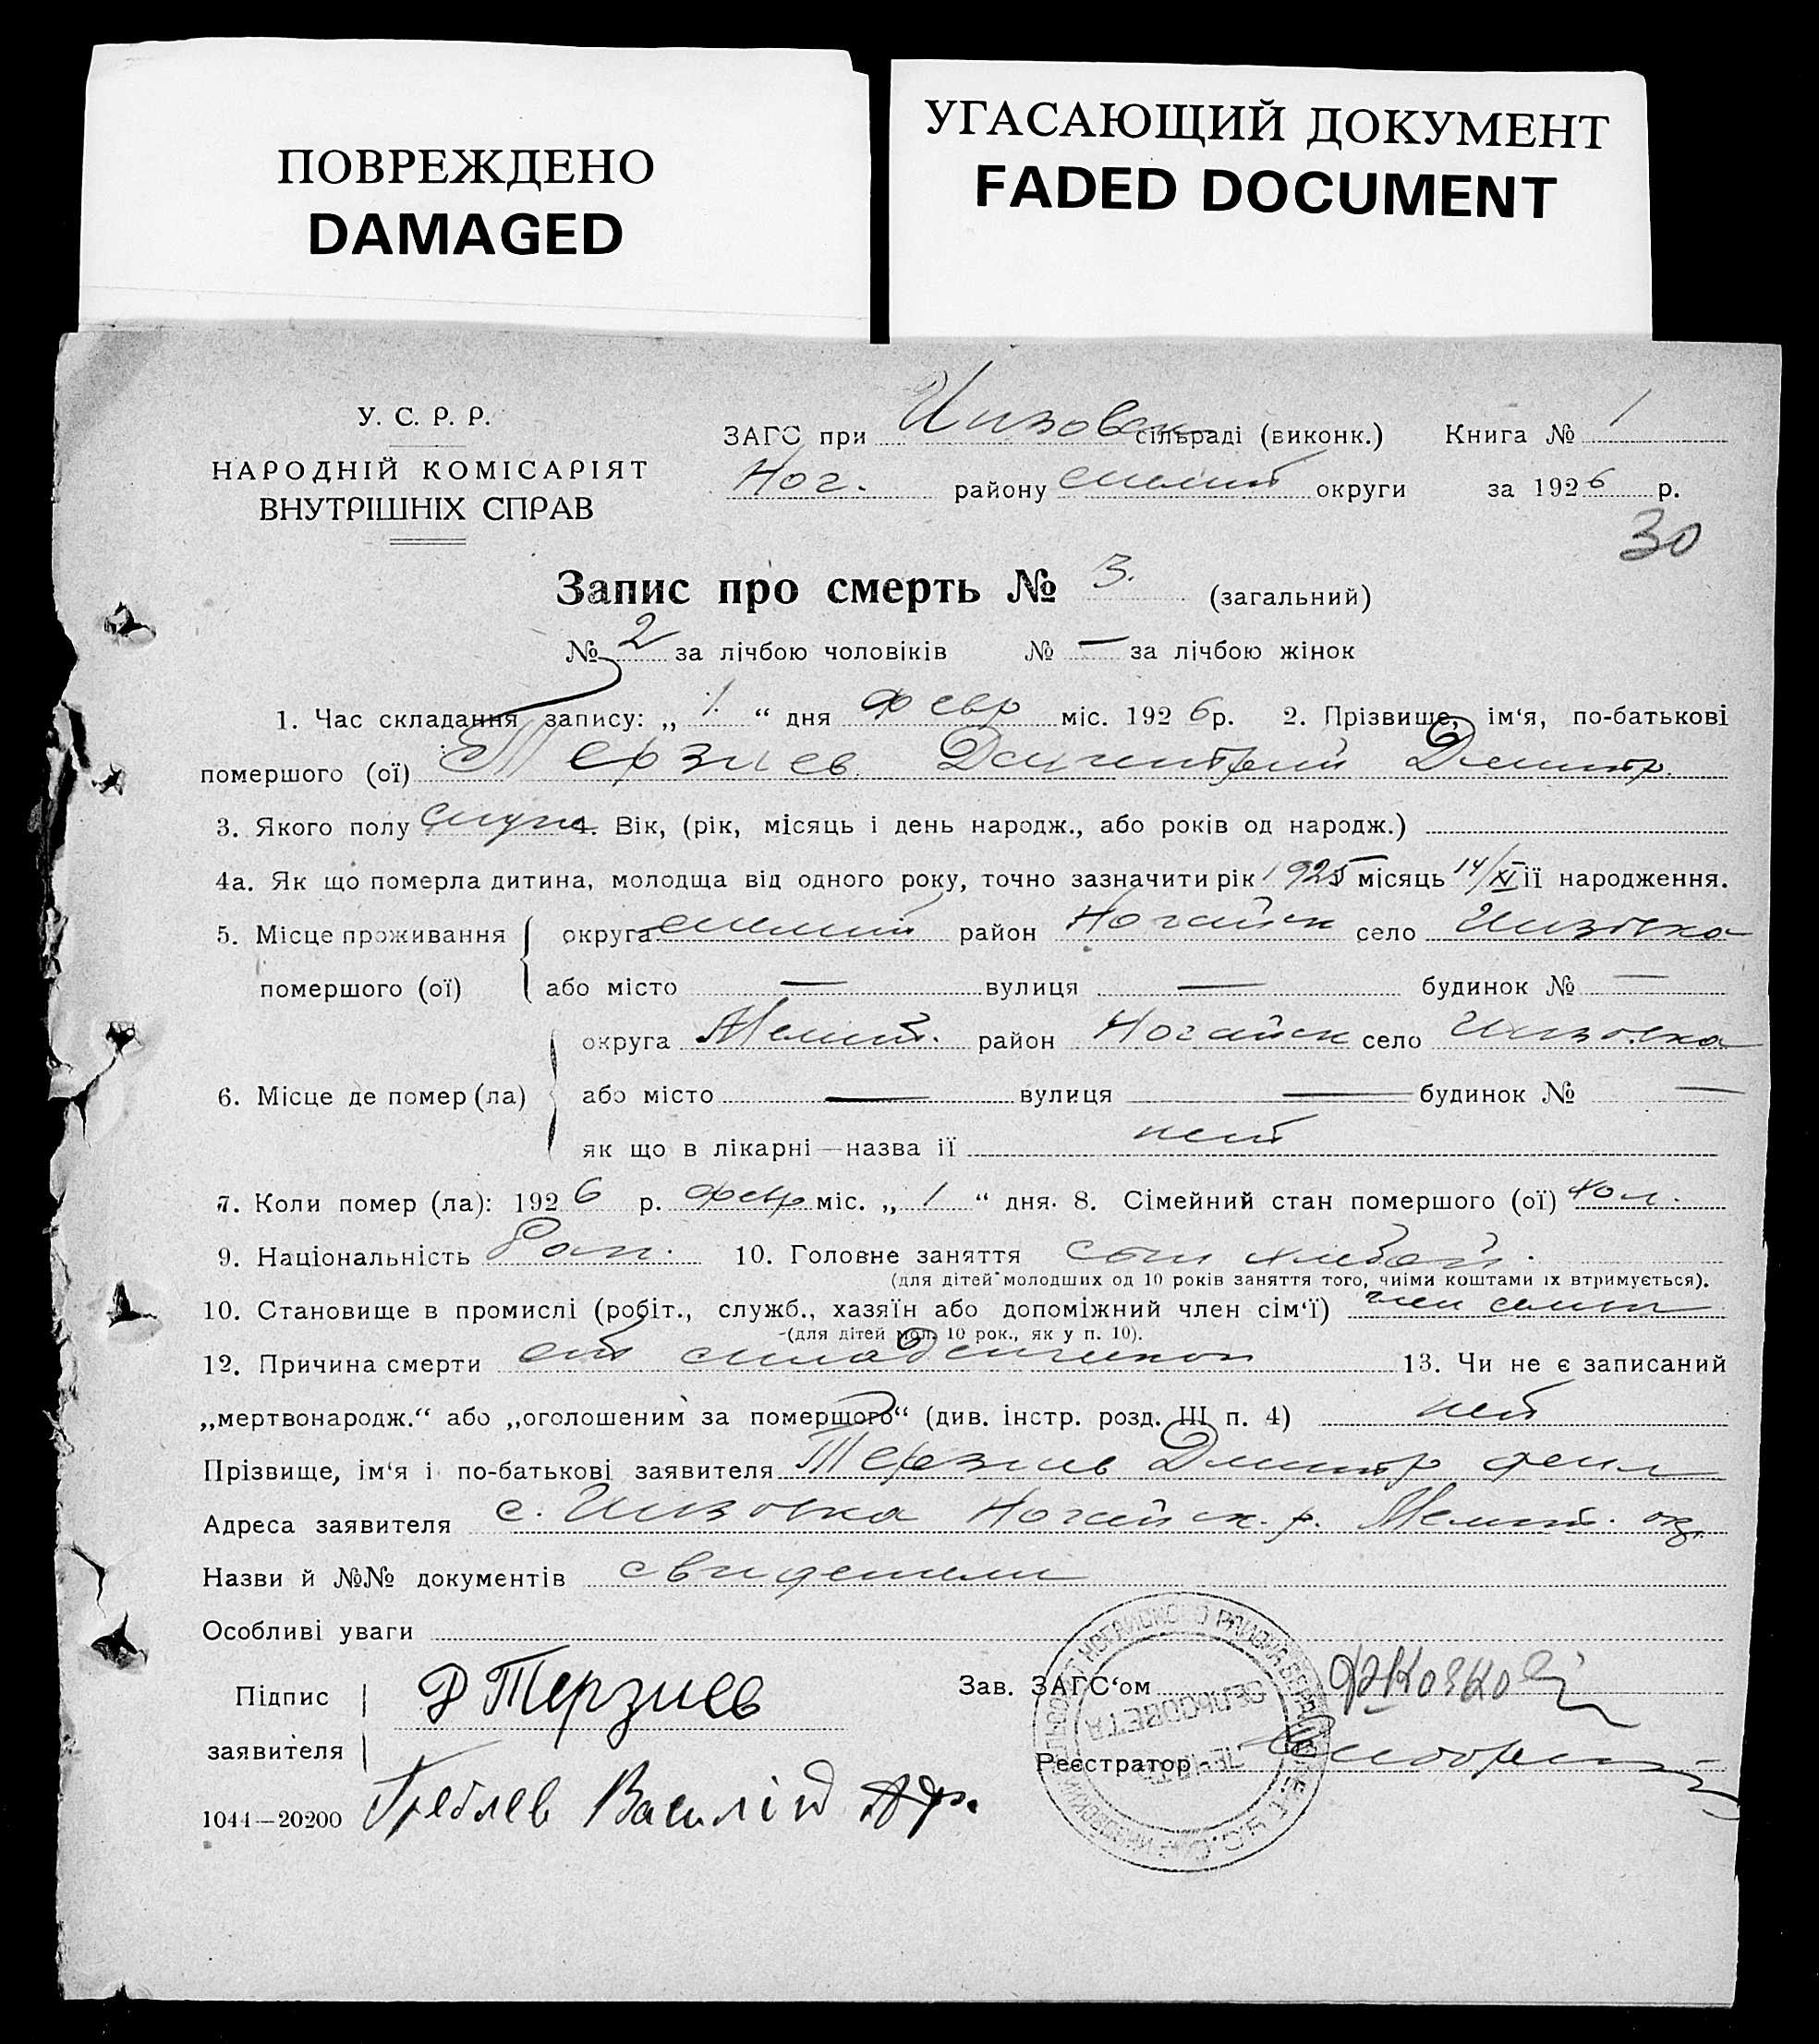 ПОВРЕЖДЕНО
DAMAGED
УГАСАЮЩИЙ ДОКУМЕНТ
FADED DOCUMENT
У. С. Р. Р.
НАРОДНІЙ КОМІСАРІЯТ
ВНУТРІШНІХ СПРАВ
ЗАГС при Инзовск сільраді (виконк.) Книга № 1
Ног. району Мелит округи за 1926 р.
30
Запис про смерть № 3. (загальний)
№ 2 за лічбою чоловіків № — за лічбою жінок
1. Час складання запису: „ 1. “ дня Февр міс. 1926 р. 2. Прізвище, ім‘я, по-батькові
помершого (ої) Терзиев Димитрий Дмитр.
3. Якого полу муж 4. Вік, (рік, місяць і день народж., або років од народж.)
4а. Як що померла дитина, молодща від одного року, точно зазначити рік 1925 місяць 14/XI її народження.
5. Місце проживання округа Мелит район Ногайск село Инзовка
помершого (ої) або місто — вулиця — будинок № —
округа Мелит. район Ногайск село Инзовка
6. Місце де помер (ла) або місто — вулиця — будинок № —
як що в лікарні—назва її нет
7. Коли помер (ла): 1926 р. февр міс. „ 1 “ дня. 8. Сімейний стан помершого (ої) хол.
9. Національність 10. Головне заняття
(для дітей молодших од 10 років заняття того, чиїми коштами їх втримується).
10. Становище в промислі (робіт., служб., хазяїн або допоміжний член сім‘ї) член семьи
(для дітей мол. 10 рок., як у п. 10).
12. Причина смерти от младенческой 13. Чи не є записаний
„мертвонародж.“ або „оголошеним за померщого“ (див. інстр. розд. III п. 4) нет
Прізвище, ім‘я і по-батькові заявителя Терзиев Дмитр
Адреса заявителя с. Инзовка Ногайск. р. Мелит. окр.
Назви й №№ документів свидетели
Особливі уваги
Підпис Д Терзиев Зав. ЗАГС‘ом
заявителя Реєстратор
1044—20200 Василій